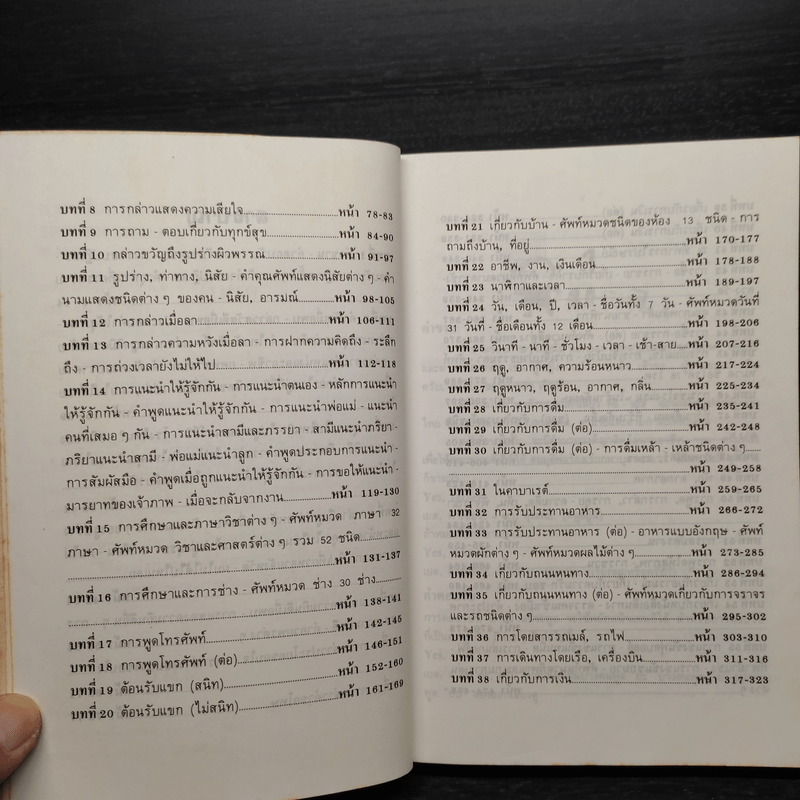 บทที่ 8 การกล่าวแสดงความเสียใจ..............................หน้า 78-83
บทที่ 9 การถาม - ตอบเกี่ยวกับทุกข์สุข....................หน้า 84-90
บทที่ 10 กล่าวขวัญถึงรูปร่างผิวพรรณ....................หน้า 91-97
บทที่ 11 รูปร่าง, ท่าทาง, นิสัย - คำคุณศัพท์แสดงนิสัยต่าง ๆ - คำ
นามแสดงชนิดต่าง ๆ ของคน - นิสัย, อารมณ์..........หน้า 98-105
บทที่ 12 การกล่าวเมื่อลา....................................หน้า 106-111
บทที่ 13 การกล่าวความหวังเมื่อลา - การฝากความคิดถึง - ระลึก
ถึง - การถ่วงเวลายังไม่ให้ไป..............................หน้า 112-118
บทที่ 14 การแนะนำให้รู้จักกัน - การแนะนำตนเอง - หลักการแนะนำ
ให้รู้จักกัน - คำพูดแนะนำให้รู้จักกัน - การแนะนำพ่อแม่ - แนะนำ
คนที่เสมอ ๆ กัน - การแนะนำสามีและภรรยา - สามีแนะนำภริยา -
ภริยาแนะนำสามี - พ่อแม่แนะนำลูก - คำพูดประกอบการแนะนำ -
การสัมผัสมือ - คำพูดเมื่อถูกแนะนำให้รู้จักกัน - การขอให้แนะนำ -
มารยาทของเจ้าภาพ - เมื่อจะกลับจากงาน...............หน้า 119-130
บทที่ 15 การศึกษาและภาษาวิชาต่างๆ - ศัพท์หมวด ภาษา 32
ภาษา - ศัพท์หมวด วิชาและศาสตร์ต่างๆ รวม 52 ชนิด..........
..............................................................หน้า 131-137
บทที่ 16 การศึกษาและการช่าง - ศัพท์หมวด ช่าง 30 ช่าง..........
..............................................................หน้า 138-141
บทที่ 17 การพูดโทรศัพท์....................................หน้า 142-145
บทที่ 18 การพูดโทรศัพท์ (ต่อ)..............................หน้า 146-151
บทที่ 19 ต้อนรับแขก (สนิท)..............................หน้า 152-160
บทที่ 20 ต้อนรับแขก (ไม่สนิท)..............................หน้า 161-169
บทที่ 21 เกี่ยวกับบ้าน - ศัพท์หมวดชนิดของห้อง 13 ชนิด - การ
ถามถึงบ้าน, ที่อยู่..............................หน้า 170-177
บทที่ 22 อาชีพ, งาน, เงินเดือน....................หน้า 178-188
บทที่ 23 นาฬิกาและเวลา..............................หน้า 189-197
บทที่ 24 วัน, เดือน, ปี, เวลา - ชื่อวันทั้ง 7 วัน - ศัพท์หมวดวันที่
31 วันที่ - ชื่อเดือนทั้ง 12 เดือน....................หน้า 198-206
บทที่ 25 วินาที - นาที - ชั่วโมง - เวลา - เช้า-สาย..........หน้า 207-216
บทที่ 26 ฤดู, อากาศ, ความร้อนหนาว....................หน้า 217-224
บทที่ 27 ฤดูหนาว, ฤดูร้อน, อากาศ, กลิ่น..............หน้า 225-234
บทที่ 28 เกี่ยวกับการดื่ม..............................หน้า 235-241
บทที่ 29 เกี่ยวกับการดื่ม (ต่อ)....................หน้า 242-248
บทที่ 30 เกี่ยวกับการดื่ม (ต่อ) - การดื่มเหล้า - เหล้าชนิดต่างๆ..........
..............................................................หน้า 249-258
บทที่ 31 ในคาบาเรต์....................................หน้า 259-265
บทที่ 32 การรับประทานอาหาร..............................หน้า 266-272
บทที่ 33 การรับประทานอาหาร (ต่อ) - อาหารแบบอังกฤษ - ศัพท์
หมวดผักต่าง ๆ - ศัพท์หมวดผลไม้ต่าง ๆ....................หน้า 273-285
บทที่ 34 เกี่ยวกับถนนหนทาง..............................หน้า 286-294
บทที่ 35 เกี่ยวกับถนนหนทาง (ต่อ) - ศัพท์หมวดเกี่ยวกับการจราจร
และรถชนิดต่างๆ....................................หน้า 295-302
บทที่ 36 การโดยสารรถเมล์, รถไฟ....................หน้า 303-310
บทที่ 37 การเดินทางโดยเรือ, เครื่องบิน....................หน้า 311-316
บทที่ 38 เกี่ยวกับการเงิน..............................หน้า 317-323